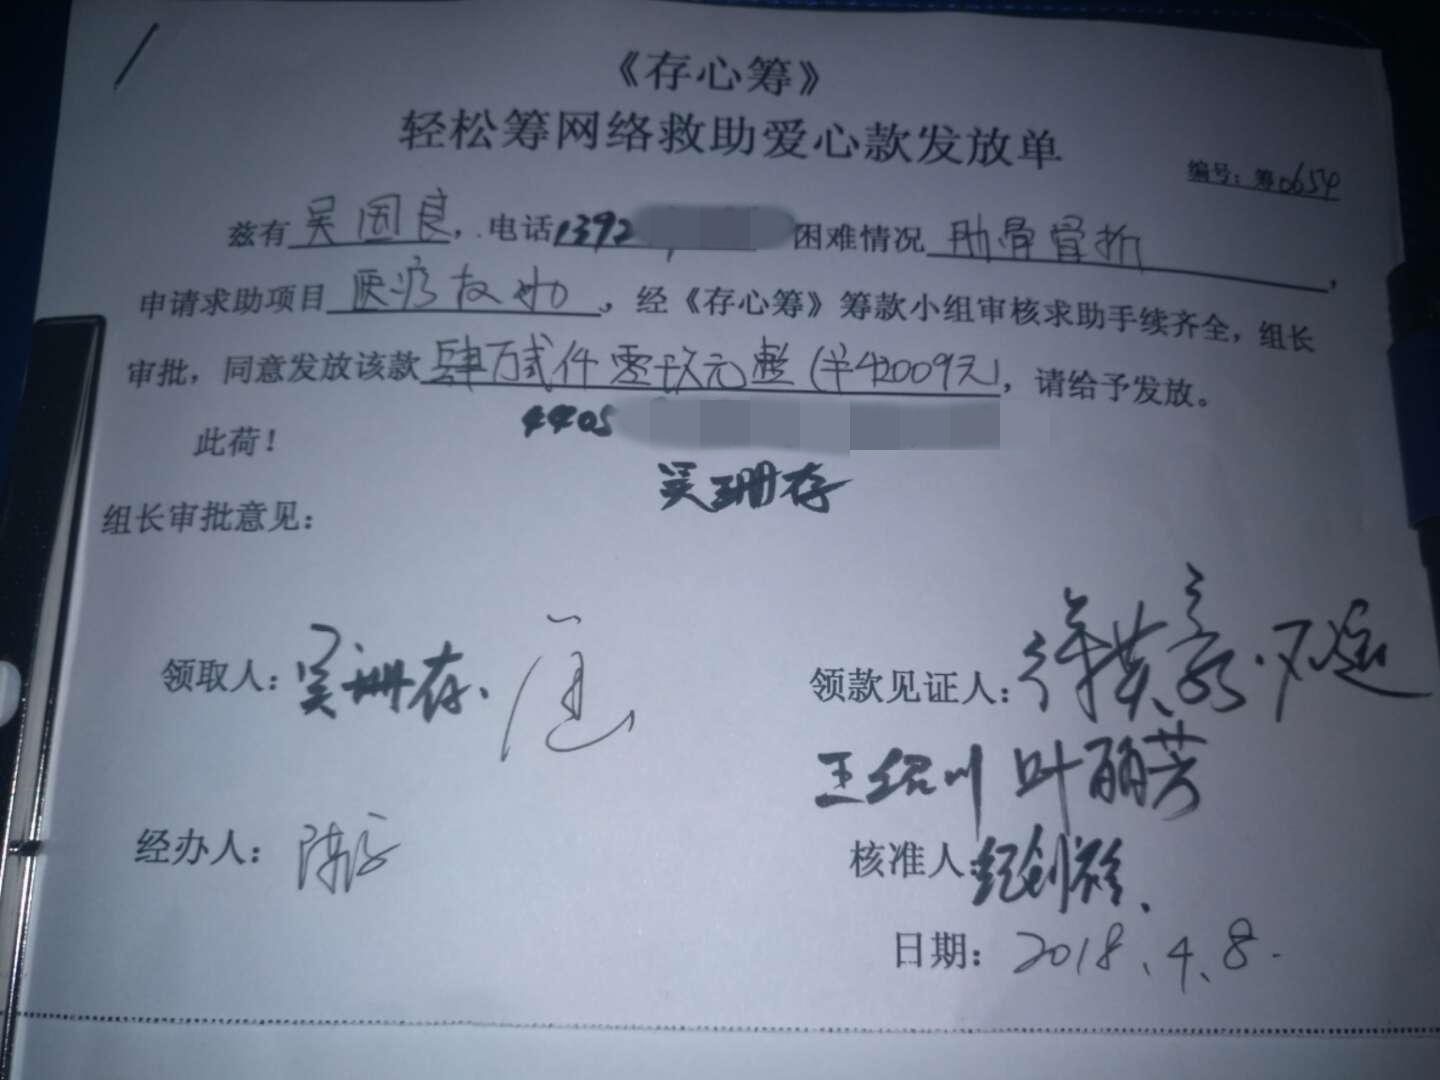 《存心筹》
轻松筹网络救助爱心款发放单
编号：筹0654
兹有吴固良，电话1392 困难情况肋骨骨折，
申请求助项目医疗救助，经《存心筹》筹款小组审核求助手续齐全，组长
审批，同意发放该款肆万贰仟零玖元整（¥42009元），请给予发放。
4405
此荷！
吴珊存
组长审批意见：
领取人：吴珊存
领款见证人：
王绍川 叶丽芳
经办人：
核准人
日期：2018.4.8.